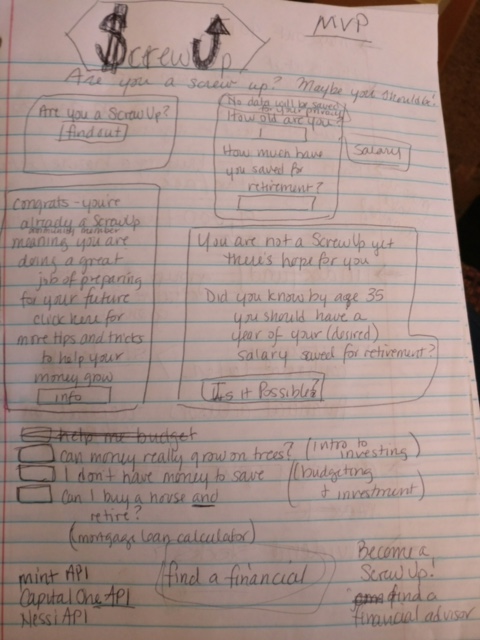 $crewUp
MVP
Are you a screw up? Maybe you should be!
Are you a ScrewUp?
find out
No data will be saved
for your privacy
How old are you?
How much have
you saved for
retirement?
salary
Congrats - you're
already a ScrewUp
community member
meaning you are
doing a great
job of preparing
for your future
click here for
more tips and tricks
to help your
money grow
info
You are not a ScrewUp yet
there's hope for you
Did you know by age 35
you should have a
year of your (desired)
salary saved for retirement?
Is it Possible?
help me budget
can money really grow on trees? (intro to
investing)
I don't have money to save (budgeting
+ investment)
Can I buy a house and
retire?
(mortgage loan calculator)
mint API
Capital One API
Nessi API
find a financial
Become a
ScrewUp!
find a
financial advisor